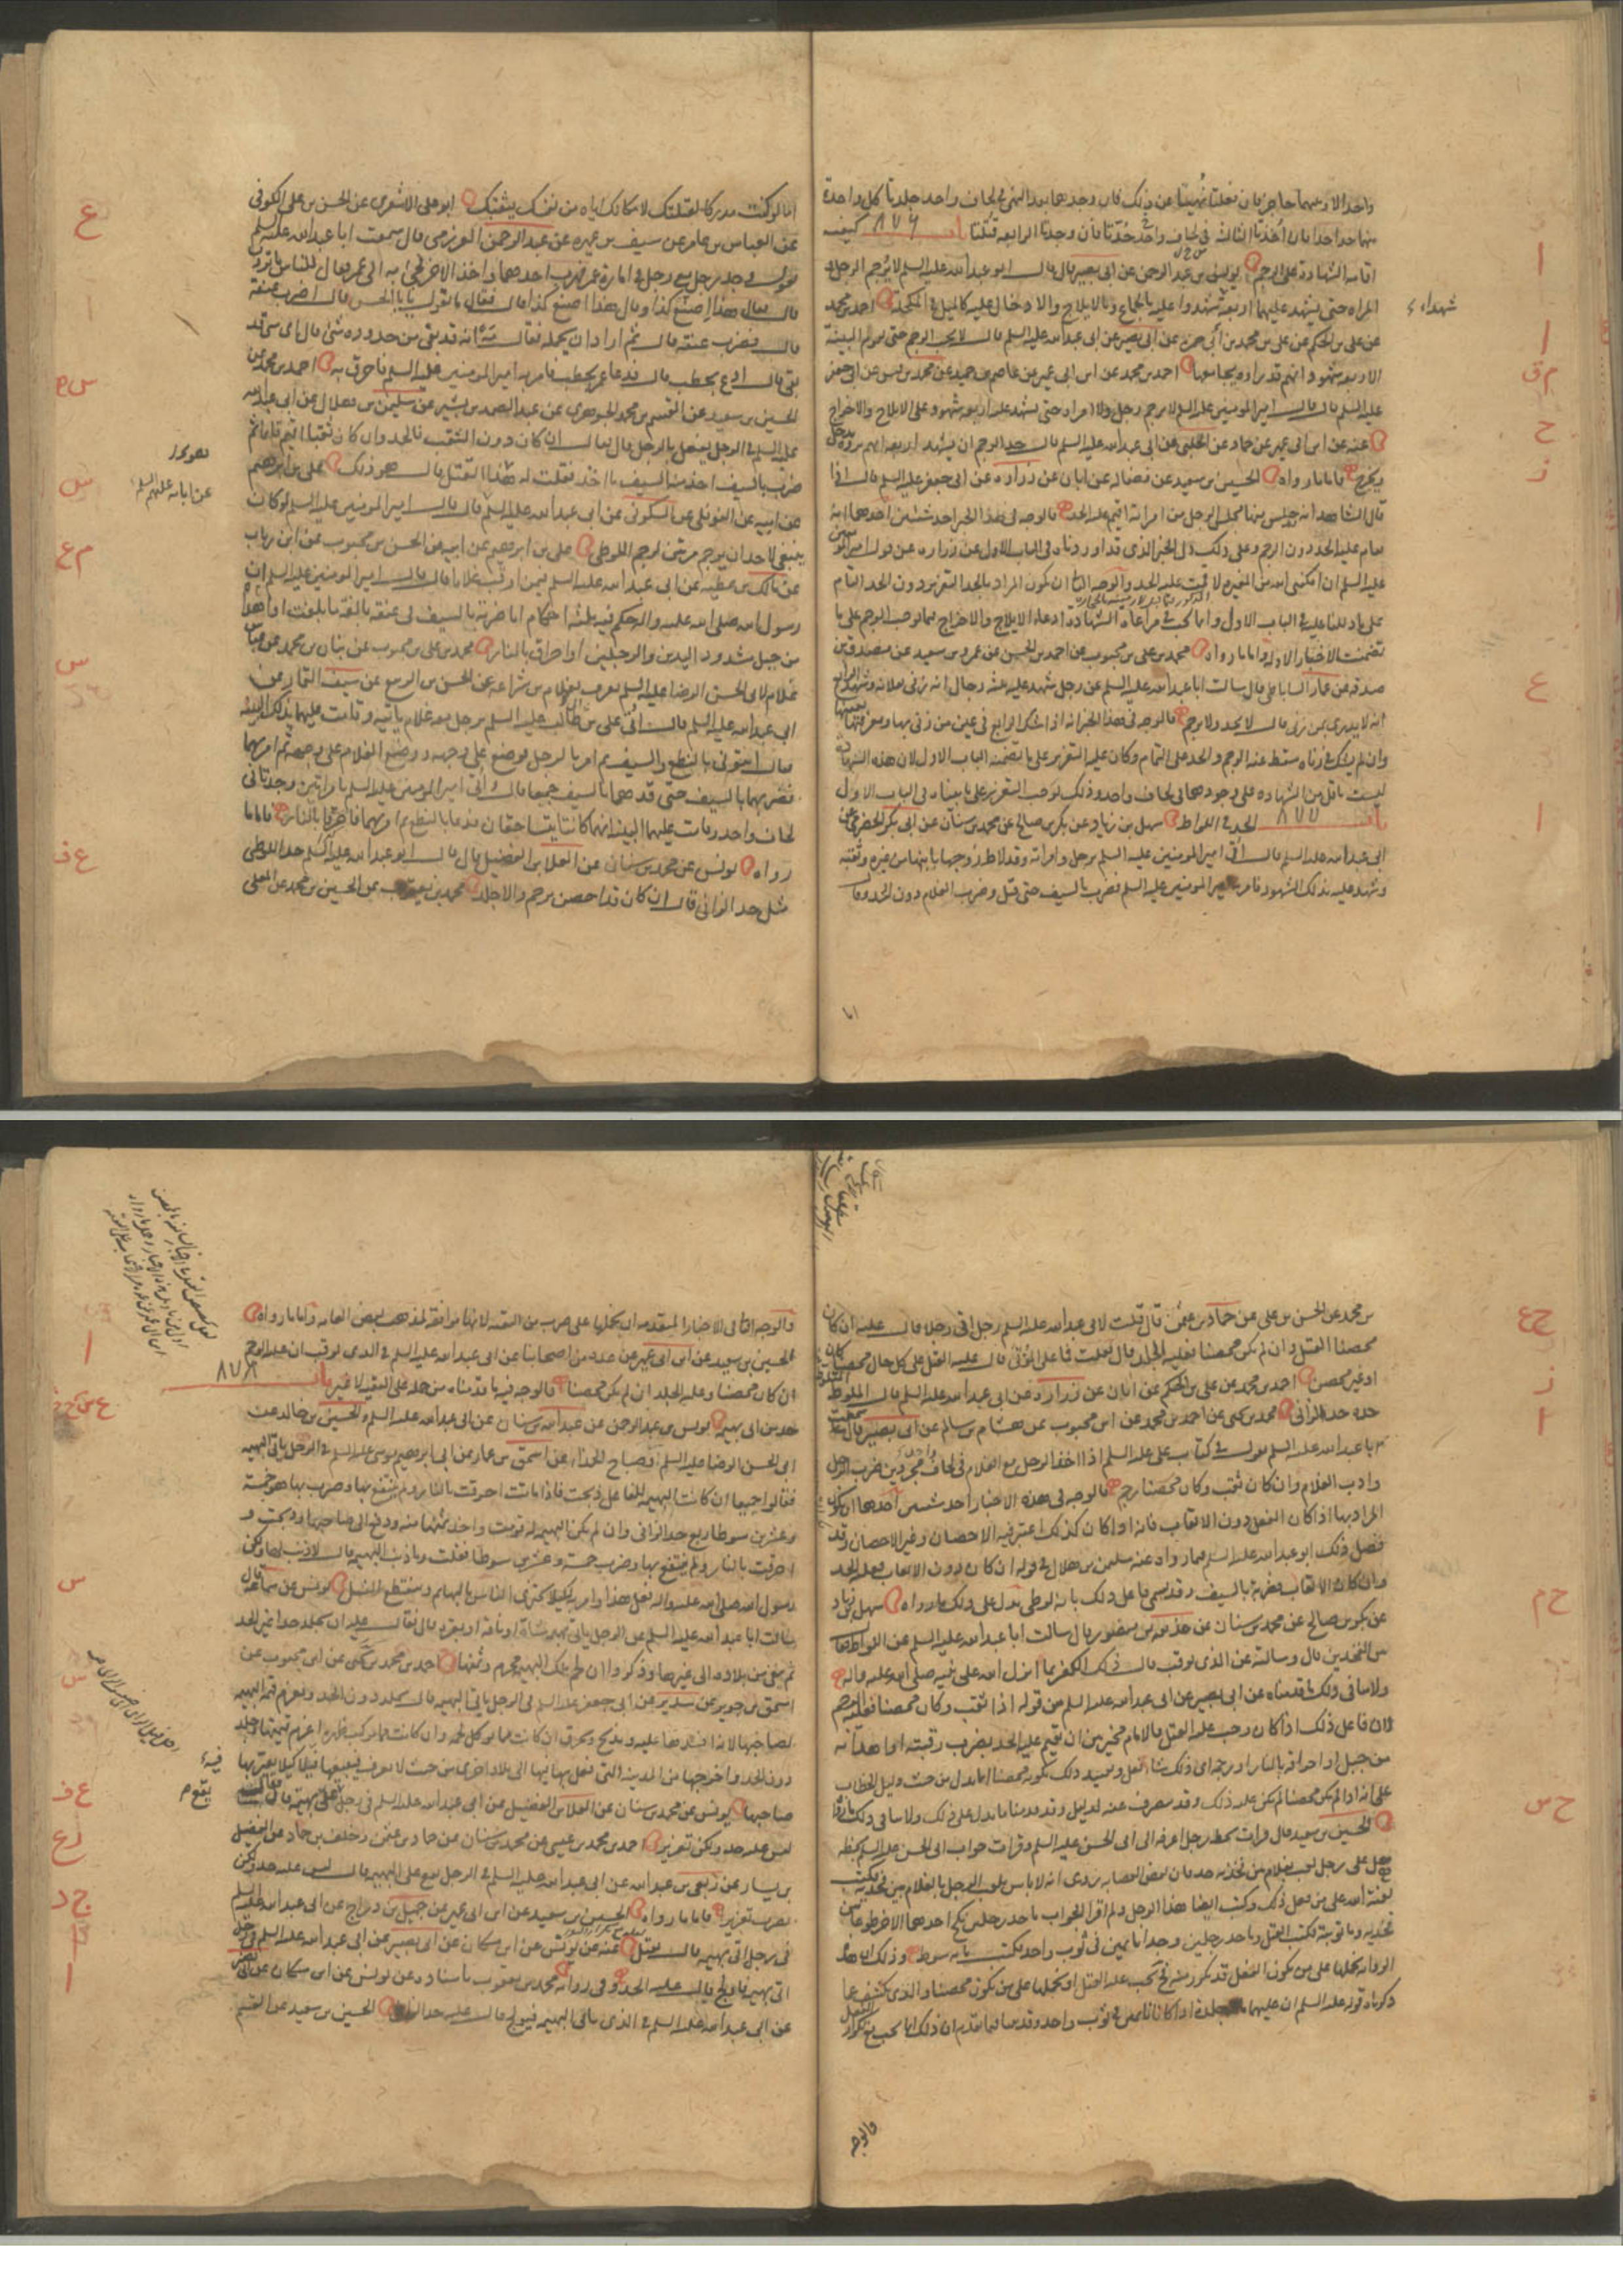 واحد الا وبينهما حاجز فان فعلتا نهيتا عن ذلك فان وجدهما بعد النهي في لحاف واحد جلدتا كل واحدة
منهما حدا حدا فان اخذتا الثالثة في لحاف واحد حدتا فان وجدتا الرابعة قتلتا باب ٨٧٦ كيفية
اقامة الشهادة على الرجم يونس بن عبد الرحمن عن ابي بصير قال قال ابو عبد الله عليه السلم لا يرجم الرجل و
المراة حتى يشهد عليهما اربعة شهداء عليه بالجماع والايلاج والادخال كالميل في المكحلة احمد بن محمد
شهداء
عن علي بن الحكم عن علي بن ابي حمزة عن ابي بصير عن ابي عبد الله عليه السلم قال لا يجب الرجم حتى يقوم البينة
الاربعة شهود انهم قد راوه يجامعها احمد بن محمد عن ابن ابي عمير عن عاصم بن حميد عن محمد بن قيس عن ابي جعفر
عليه السلم قال قال امير المومنين عليه السلم لا يرجم رجل ولا امراة حتى يشهد عليه اربعة شهود على الايلاج والاخراج
عنه عن ابن ابي عمير عن حماد عن الحلبي عن ابي عبد الله عليه السلم قال حد الرجم ان يشهد اربعة انهم راوه يدخل
ويخرج فاما ما رواه الحسين بن سعيد عن فضالة عن ابان عن زرارة عن ابي جعفر عليه السلم قال اذا
قال الشاهد انه جلس منها مجلس الرجل من امراته اقيم عليه الحد فالوجه في هذا الخبر احد شيئين احدهما انه
يقام عليه الحد دون الرجم وعلى ذلك دل الخبر الذي قد اوردناه في الباب الاول عن زرارة عن قول امير المومنين
عليه السلم ان امكنني الله من المغيرة لاقيمن عليه الحد والوجه الثاني ان يكون المراد بالحد التعزير دون الحد التام
على ما دللنا عليه في الباب الاول وانما يجب مراعاة الشهادة على الايلاج والاخراج بما يوجب الرجم على ما
تضمنت الاخبار الاولة واما ما رواه محمد بن علي بن محبوب عن احمد بن الحسن عن عمرو بن سعيد عن مصدق بن
صدقة عن عمار الساباطي قال سالت ابا عبد الله عليه السلم عن رجل شهد عليه ثلثة رجال انه زنى بفلانة وشهد الرابع
انه لا يدري بمن زنى قال لا يحد ولا يرجم فالوجه في هذا الخبر انه اذا شك الرابع في عين من زنى بها ومعرفتها بعينها
وان لم يشك في زناه سقط عنه الرجم والحد على التمام وكان عليه التعزير على ما تضمنه الباب الاول لان هذه الشهادة
ليست باقل من الشهادة على وجودهما في لحاف واحد وذلك يوجب التعزير على ما بيناه في الباب الاول
باب ٨٧٧ الحد في اللواط سهل بن زياد عن بكر بن صالح عن محمد بن سنان عن ابي بكر الحضرمي عن
ابي عبد الله عليه السلم قال اتي امير المومنين عليه السلم برجل وامراته وقد لاط زوجها بابنها من غيره وثقبه
وشهد عليه بذلك الشهود فامر به امير المومنين عليه السلم فضرب بالسيف حتى قتل وضرب الغلام دون الحد وقال
اما
اما لو كنت مدركا لقتلتك لامكانك اياه من نفسك بثقبك ابو علي الاشعري عن الحسن بن علي الكوفي
عن العباس بن عامر عن سيف بن عميرة عن عبد الرحمن العرزمي قال سمعت ابا عبد الله عليه السلم
يقول وجد رجل مع رجل في امارة عمر فهرب احدهما واخذ الاخر فجيء به الى عمر فقال للناس ما ترون
قال فقال هذا اصنع كذا وقال هذا اصنع كذا قال فقال ما تقول يا ابا الحسن قال اضرب عنقه
قال فضرب عنقه قال ثم اراد ان يحمله فقال مه انه قد بقي من حدوده شئ قال اي شئ قد
بقي قال ادع بحطب قال فدعا عمر بحطب فامر به امير المومنين عليه السلم فاحرق به احمد بن محمد عن
الحسين بن سعيد عن القسم بن محمد الجوهري عن عبد الصمد بن بشير عن سليمن بن هلال عن ابي عبد الله
عليه السلم في الرجل يفعل بالرجل قال فقال ان كان دون الثقب فالحد وان كان ثقبا اقيم قائما ثم
ضرب بالسيف اخذ منه السيف ما اخذ فقلت له هذا القتل قال هو ذلك علي بن ابرهيم
عن ابيه عن النوفلي عن السكوني عن ابي عبد الله عليه السلم قال قال امير المومنين عليه السلم لو كان
عن ابائه عليهم السلم
ينبغي لاحد ان يرجم مرتين لرجم اللوطي علي بن ابرهيم عن ابيه عن الحسن بن محبوب عن ابن رياب
عن مالك بن عطية عن ابي عبد الله عليه السلم فيمن اوقب غلاما قال قال امير المومنين عليه السلم ان
رسول الله صلى الله عليه واله حكم فيه بثلثة احكام اما ضربة بالسيف في عنقه بالغة ما بلغت او اهداء
من جبل مشدود اليدين والرجلين او احراق بالنار محمد بن علي بن محبوب عن بنان بن محمد عن العباس
غلام لابي الحسن الرضا عليه السلم يعرف بغلام بن شراعة عن الحسن بن الربيع عن سيف التمار عن
ابي عبد الله عليه السلم قال اتي علي بن ابي طالب عليه السلم برجل معه غلام ياتيه وقامت عليهما بذلك البينة
فقال ايتوني بالنطع والسيف ثم امر بالرجل فوضع على وجهه ووضع الغلام على وجهه ثم امر بهما
فضربهما بالسيف حتى قدهما بالسيف جميعا قال واتي امير المومنين عليه السلم بامراتين وجدتا في
لحاف واحد وقامت عليهما البينة انهما كانتا يتساحقان فدعا بالنطع ثم امر بهما فاحرقا بالنار فاما ما
رواه يونس عن محمد بن سنان عن العلا بن الفضيل قال قال ابو عبد الله عليه السلم حد اللوطي
مثل حد الزاني قال ان كان قد احصن يرجم والا جلد محمد بن يعقوب عن الحسين بن محمد عن المعلى
بن محمد عن الحسن بن علي عن حماد بن عثمن قال قلت لابي عبد الله عليه السلم رجل اتى رجلا قال عليه ان كان
محصنا القتل وان لم يكن محصنا فعليه الجلد قال فقلت فما على المؤتى قال عليه القتل على كل حال محصنا كان
او غير محصن احمد بن محمد عن علي بن الحكم عن ابان عن زرارة عن ابي عبد الله عليه السلم قال الملوط
حده حد الزاني محمد بن يحيى عن احمد بن محمد عن ابن محبوب عن هشام بن سالم عن ابي بصير قال سمعت
ابا عبد الله عليه السلم يقول في كتاب علي عليه السلم اذا اخذ الرجل مع الغلام في لحاف مجردين ضرب الرجل
وادب الغلام وان كان ثقب وكان محصنا رجم فالوجه في هذه الاخبار احد شيئين احدهما ان يكون
المراد بها اذا كان الفعل دون الايقاب فانه اذا كان كذلك اعتبر فيه الاحصان وغير الاحصان وقد
فصل ذلك ابو عبد الله عليه السلم فيما رواه عنه سليمن بن هلال في قوله ان كان دون الايقاب فعليه الحد
وان كان الايقاب فضربة بالسيف وقد يسمى فاعل ذلك بانه لوطي يدل على ذلك ما رواه سهل بن زياد
عن بكر بن صالح عن محمد بن سنان عن حذيفة بن منصور قال سالت ابا عبد الله عليه السلم عن اللواط فقال
بين الفخذين قال وسالته عن الذي يوقب قال ذلك الكفر بما انزل الله على نبيه صلى الله عليه واله
ولا ينافي ذلك ما قدمناه عن ابي بصير عن ابي عبد الله عليه السلم من قوله اذا ثقب وكان محصنا فعليه الرجم
لان فاعل ذلك اذا كان وجب عليه القتل فالامام مخير بين ان يقيم عليه الحد بضرب رقبته او اهدائه
من جبل او احراقه بالنار او رجمه اي ذلك شاء فعل وتقييد ذلك بكونه محصنا انما يدل من حيث دليل الخطاب
على انه اذا لم يكن محصنا لم يكن عليه ذلك وقد ينصرف عنه لدليل وقد قدمنا ما يدل على ذلك ولا ينافي ذلك ما رواه
الحسين بن سعيد قال قرات بخط رجل اعرفه الى ابي الحسن عليه السلم وقرات جواب ابي الحسن عليه السلم بخطه
هل على رجل لعب بغلام بين فخذيه حد فان بعض العصابة روى انه لا باس بلعب الرجل بالغلام بين فخذيه فكتب
لعنة الله على من فعل ذلك وكتب ايضا هذا الرجل ولم ار الجواب ما حد رجلين نكح احدهما الاخر طوعا بين
فخذيه وما توبته فكتب القتل وما حد رجلين وجدا نائمين في ثوب واحد فكتب مائة سوط وذلك ان هذه
الرواية نحملها على من يكون الفعل قد تكرر منه فحينئذ يجب عليه القتل او نحملها على من يكون محصنا والذي يكشف عما
ذكرناه قوله عليه السلم ان عليهما مائة جلدة اذا كانا نائمين في ثوب واحد وقد بينا فيما تقدم ان ذلك انما يجب مع تكرار الفعل
فالوجه
والوجه الثاني في الاخبار المتقدمة ان نحملها على ضرب من التقية لانها موافقة لمذهب بعض العامة واما ما رواه
الحسين بن سعيد عن ابن ابي عمير عن عدة من اصحابنا عن ابي عبد الله عليه السلم في الذي يوقب ان عليه الرجم
ان كان محصنا وعليه الجلد ان لم يكن محصنا فالوجه فيه ما قدمناه من حمله على التقية لا غير باب ٨٧٨
حد من اتى بهيمة يونس بن عبد الرحمن عن عبد الله بن سنان عن ابي عبد الله عليه السلم والحسين بن خالد عن
ابي الحسن الرضا عليه السلم وصباح الحذاء عن اسحق بن عمار عن ابي ابرهيم موسى عليه السلم في الرجل ياتي البهيمة
فقالوا جميعا ان كانت البهيمة للفاعل ذبحت فاذا ماتت احرقت بالنار ولم ينتفع بها وضرب هو خمسة
وعشرين سوطا ربع حد الزاني وان لم تكن البهيمة له قومت واخذ ثمنها منه ودفع الى صاحبها وذبحت و
احرقت بالنار ولم ينتفع بها وضرب خمسة وعشرين سوطا فقلت وما ذنب البهيمة قال لا ذنب لها ولكن
رسول الله صلى الله عليه واله فعل هذا وامر به لكيلا يجترئ الناس بالبهايم وينقطع النسل يونس عن سماعة قال
سالت ابا عبد الله عليه السلم عن الرجل ياتي بهيمة شاة او ناقة او بقرة قال فقال عليه ان يجلد حدا غير الحد
ثم ينفى من بلاده الى غيرها وذكروا ان لحم تلك البهيمة محرم وثمنها احمد بن محمد بن يحيى عن ابن محبوب عن
اسحق بن جرير عن سدير عن ابي جعفر عليه السلم في الرجل ياتي البهيمة قال يجلد دون الحد ويغرم قيمة البهيمة
لصاحبها لانه افسدها عليه وتذبح وتحرق ان كانت مما يوكل لحمه وان كانت مما يركب ظهره اغرم قيمتها وجلد
دون الحد واخرجها من المدينة التي فعل بها فيها الى بلاد اخرى من حيث لا تعرف فيبيعها فيها كيلا يعير بها
صاحبها يونس عن محمد بن سنان عن العلا بن الفضيل عن ابي عبد الله عليه السلم في رجل يقع على بهيمة قال فقال
ليس عليه حد ولكن تعزير احمد بن محمد بن عيسى عن محمد بن سنان عن حماد بن عثمن وخلف بن حماد عن الفضيل
بن يسار عن ربعي بن عبد الله عن ابي عبد الله عليه السلم في الرجل يقع على البهيمة قال ليس عليه حد ولكن
يضرب تعزيرا فاما ما رواه الحسين بن سعيد عن ابن ابي عمير عن جميل بن دراج عن ابي عبد الله عليه السلم
في رجل اتى بهيمة قال يقتل عنه عن يونس عن ابن مسكان عن ابي بصير عن ابي عبد الله عليه السلم في رجل
اتى بهيمة فاولج قال عليه الحد وفي رواية محمد بن يعقوب باسناده عن يونس عن ابن مسكان عن ابي بصير
عن ابي عبد الله عليه السلم في الذي ياتي البهيمة فيولج قال عليه حد الزاني الحسين بن سعيد عن القسم